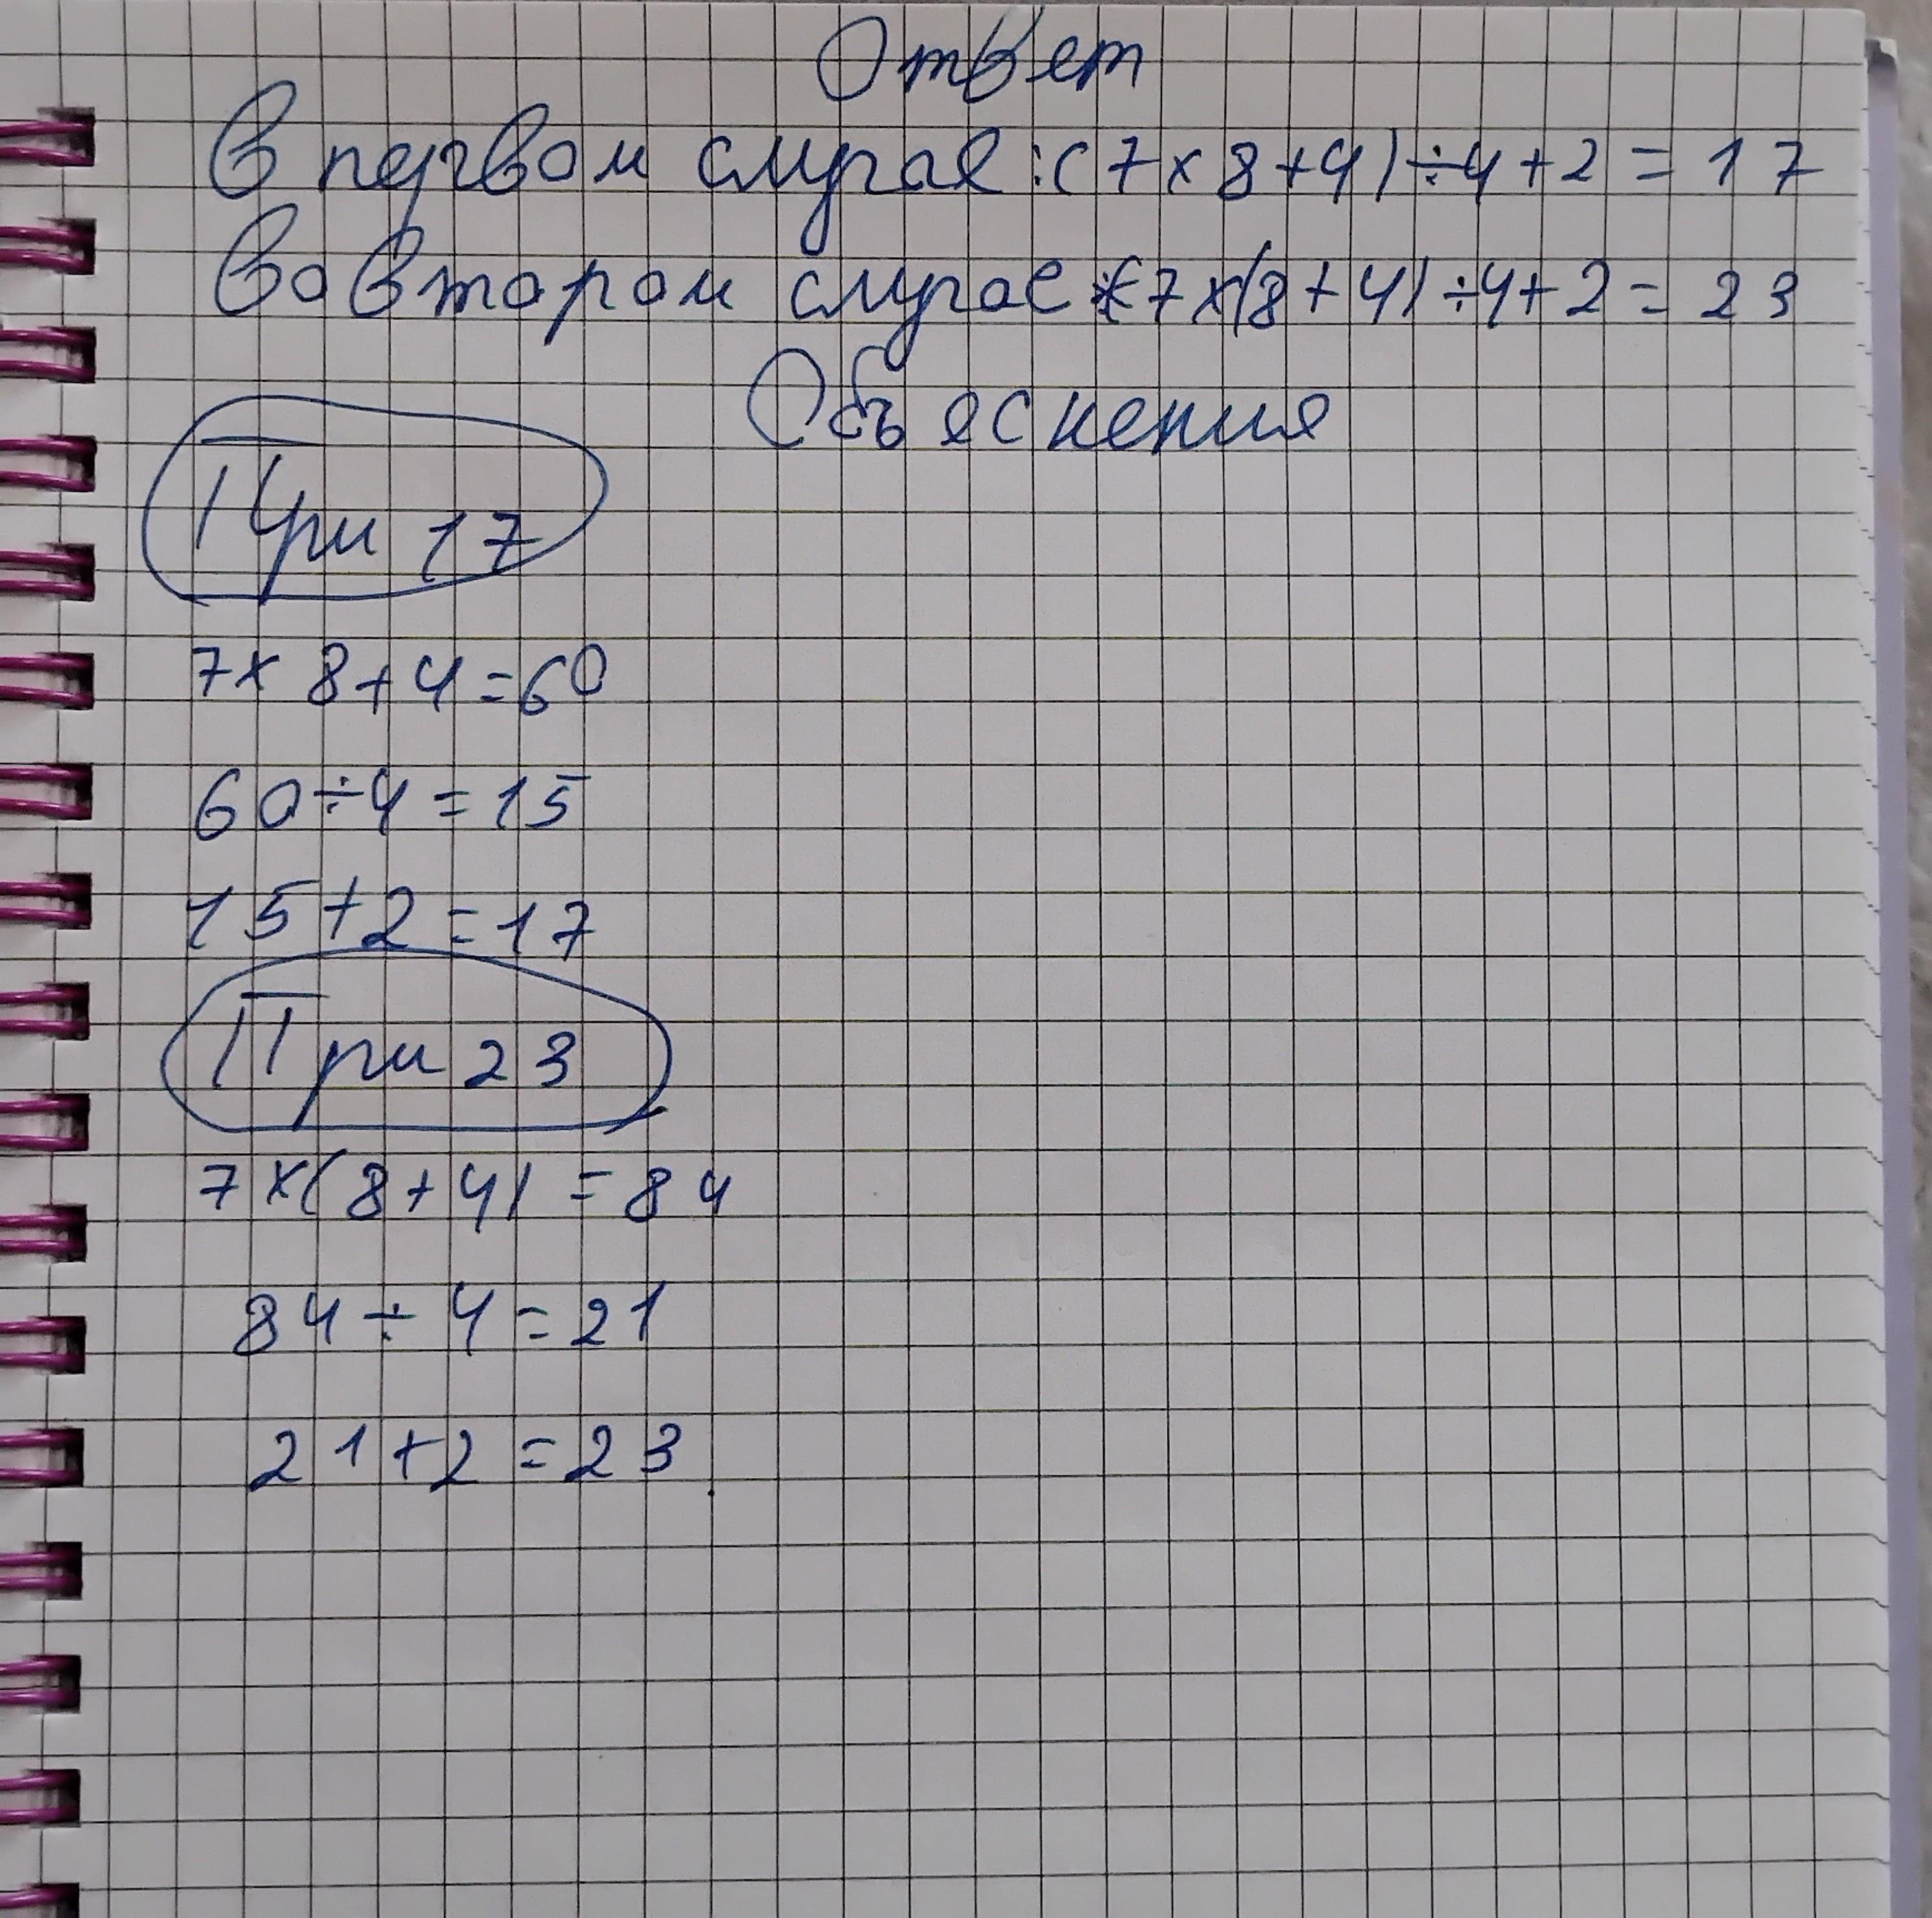 Ответ
В первом случае: (7×8+4)÷4+2=17
Во втором случае: 7×(8+4)÷4+2=23
Объеснения
При 17
7×8+4=60
60÷4=15
15+2=17
При 23
7×(8+4)=84
84÷4=21
21+2=23